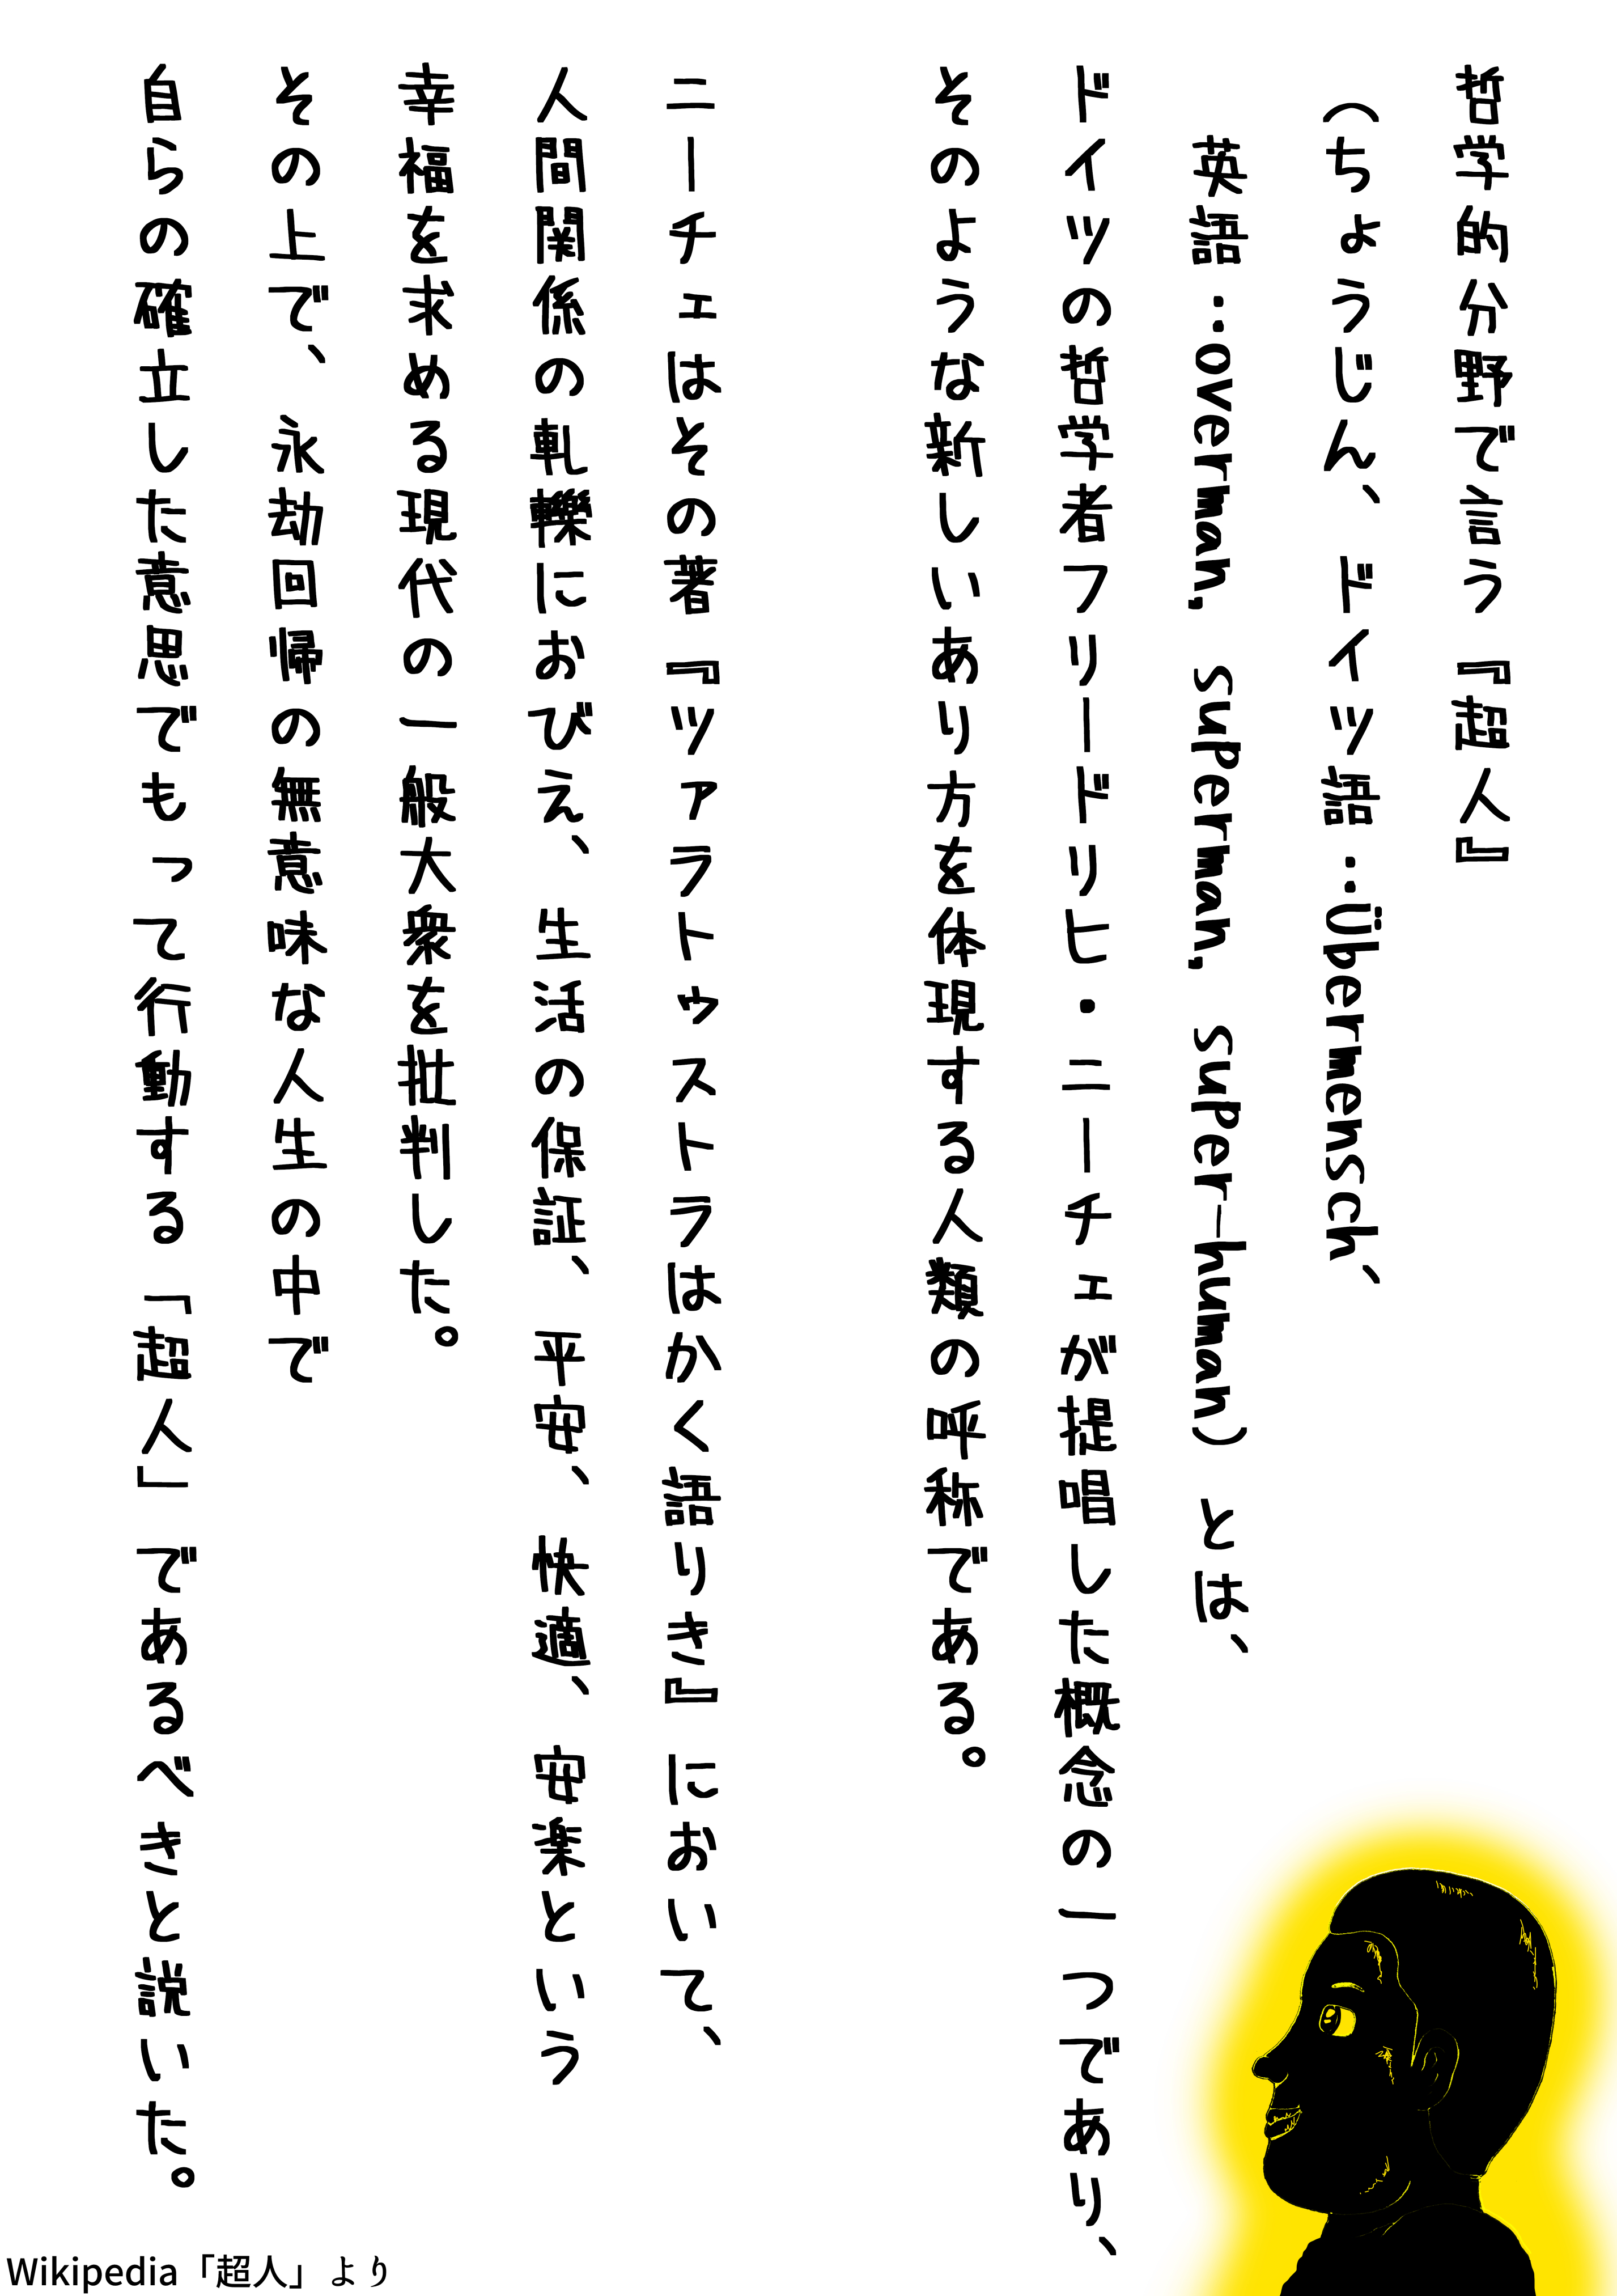 哲学的分野で言う『超人』
（ちょうじん、ドイツ語：Übermensch、
英語：overman, superman, super-human）とは、
ドイツの哲学者フリードリヒ・ニーチェが提唱した概念の一つであり、
そのような新しいあり方を体現する人類の呼称である。
ニーチェはその著『ツァラトゥストラはかく語りき』において、
人間関係の軋轢におびえ、生活の保証、平安、快適、安楽という
幸福を求める現代の一般大衆を批判した。
その上で、永劫回帰の無意味な人生の中で
自らの確立した意思でもって行動する「超人」であるべきと説いた。
Wikipedia「超人」より